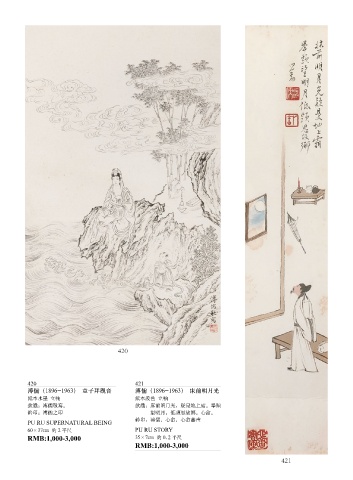 床前明月光疑是地上霜
舉頭望明月低頭思故鄉
心畬
420
421
420
溥儒（1896-1963） 童子拜觀音
紙本水墨 立軸
鈐印：溥儒之印
PU RU SUPERNATURAL BEING
60×37cm 約2平尺
RMB:1,000-3,000
421
溥儒（1896-1963） 床前明月光
紙本設色 立軸
款識：床前明月光，疑是地上霜。舉頭
望明月，低頭思故鄉。心畬。
PU RU STORY
RMB:1,000-3,000